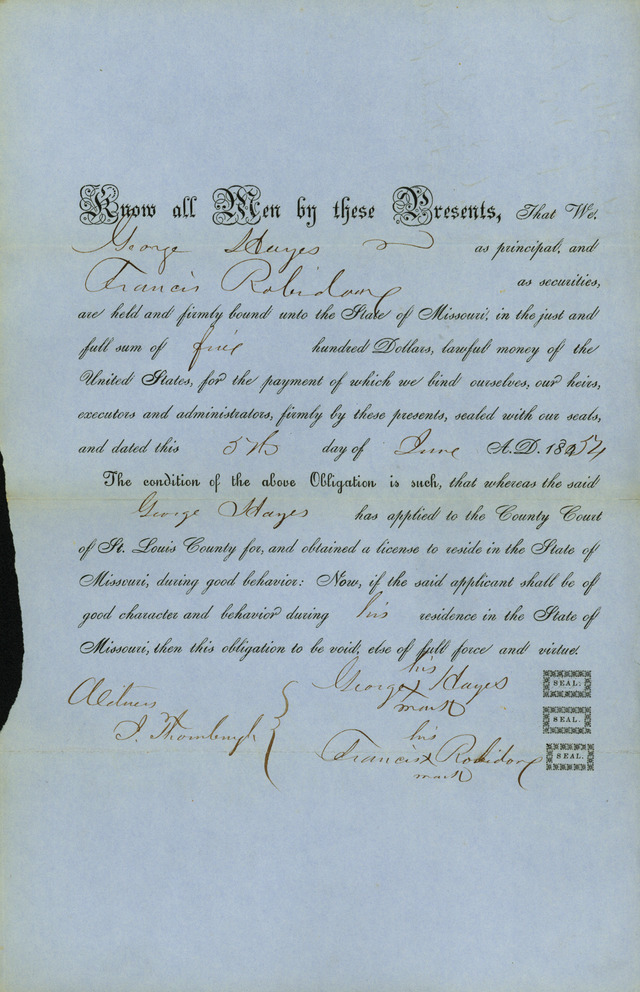 Know all Men by these Presents, That We,
George Hayes as principal, and
Francis Robidoux as securities,
are held and firmly bound unto the State of Missouri, in the just and
full sum of five hundred Dollars, lawful money of the
United States, for the payment of which we bind ourselves, our heirs,
executors and administrators, firmly by these presents, sealed with our seals,
and dated this 5th day of June A.D. 1854
The condition of the above Obligation is such, that whereas the said
George Hayes has applied to the County Court
of St. Louis County for, and obtained a license to reside in the State of
Missouri, during good behavior: Now, if the said applicant shall be of
good character and behavior during his residence in the State of
Missouri, then this obligation to be void, else of full force and virtue.
his
George x Hayes SEAL.
mark
Witness
J. Thornburgh
SEAL.
his
Francis x Robidoux SEAL.
mark